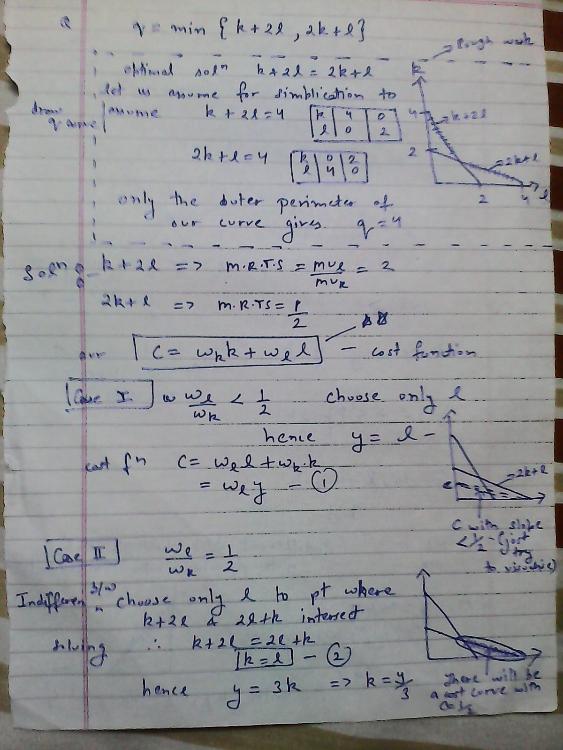 Q q = min { k + 2l , 2k + l }
→ Rough work
optimal solⁿ k + 2l = 2k + l
let us assume for simplication to
draw q curve
assume k + 2l = 4
k 4 0
l 0 2
2k + l = 4
k 0 2
l 4 0
k
4
k + 2l
2
2k + l
2 4 l
only the outer perimeter of
our curve gives q = 4
Solⁿ : k + 2l => M.R.T.S = MUl / MUk = 2
2k + l => M.R.TS = 1/2
our C = wk k + wl l – cost function
Case I wl / wk < 1/2 choose only l
hence y = l –
cost fⁿ C = wl l + wk k
= wl y – ①
2k + l
c
C with slope
< 1/2 - (just
try
to visualise)
Case II wl / wk = 1/2
Indifferen b/w
n choose only l to pt where
k + 2l & 2l + k intersect
solving ∴ k + 2l = 2l + k
k = l – ②
hence y = 3k => k = y/3
There will be
a cost curve with